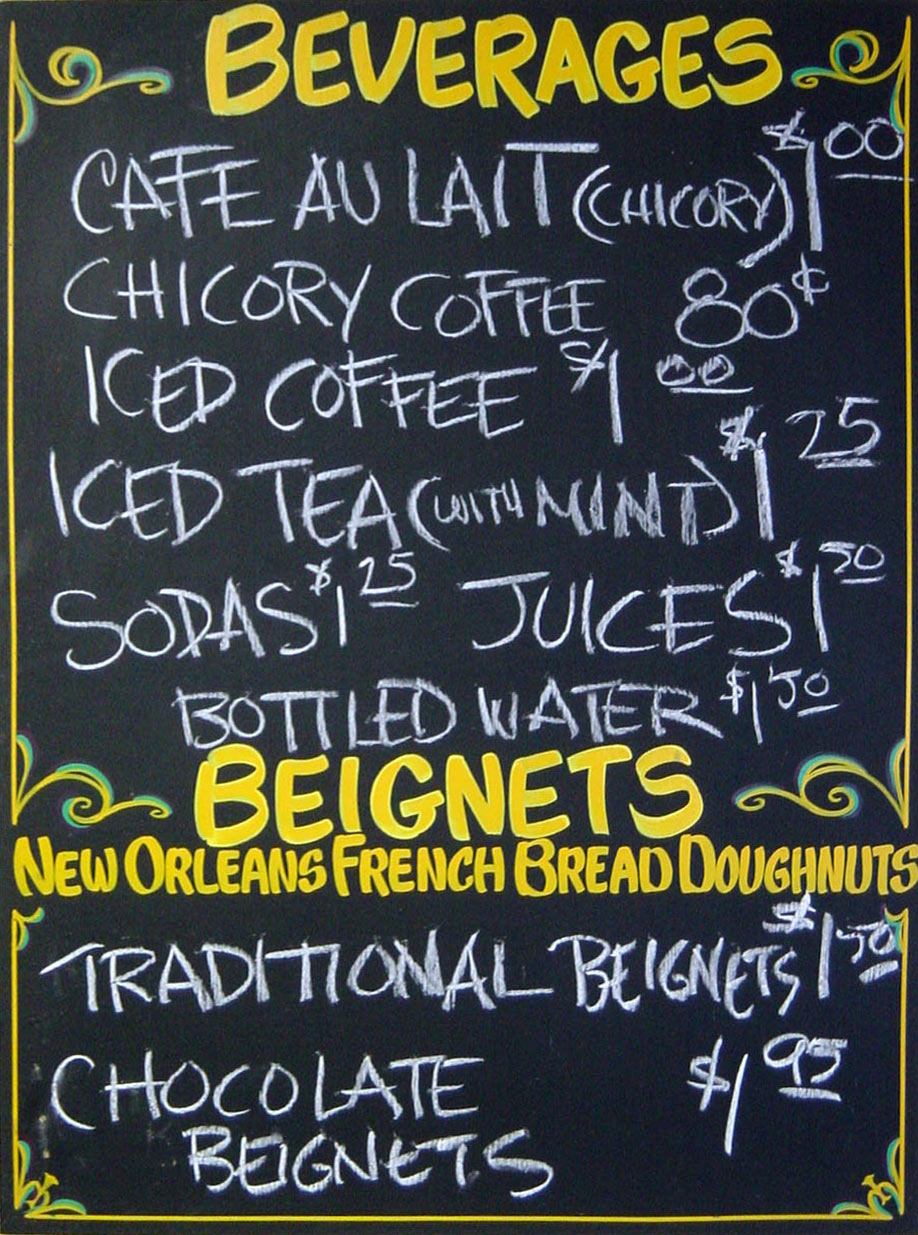 BEVERAGES
CAFE AU LAIT (CHICORY) $1.00
CHICORY COFFEE 80¢
ICED COFFEE $1 00
ICED TEA (WITH MINT) $1 25
SODAS $1 25 JUICES $1 50
BOTTLED WATER $1 50
BEIGNETS
NEW ORLEANS FRENCH BREAD DOUGHNUTS
TRADITIONAL BEIGNETS $1 50
CHOCOLATE $1 95
BEIGNETS